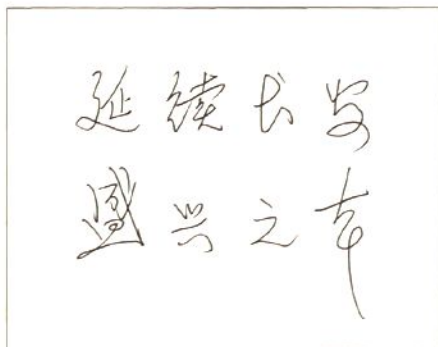 延续长安
盛兴之本